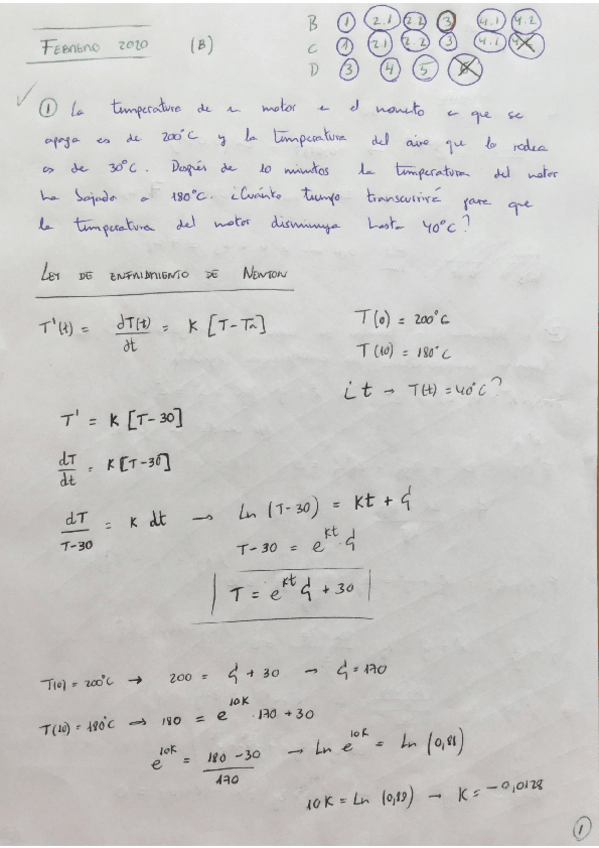 FEBRERO 2020 (B)
B 1 2.1 2.2 3 4.1 4.2
C 1 2.1 2.2 3 4.1
D 3 4 5
① La temperatura de un motor en el momento en que se
apaga es de 200°C y la temperatura del aire que lo rodea
es de 30°C. Después de 10 minutos la temperatura del motor
ha bajado a 180°C. ¿Cuánto tiempo transcurrirá para que
la temperatura del motor disminuya hasta 40°C?
LEY DE ENFRIAMIENTO DE NEWTON
T'(t) = dT(t)/dt = K [T-Ta]
T(0) = 200°C
T(10) = 180°C
¿t → T(t) = 40°C?
T' = K [T-30]
dT/dt = K [T-30]
dT/T-30 = K dt → Ln (T-30) = Kt + C₁
T-30 = e^Kt · C₁
T = e^Kt C₁ + 30
T(0) = 200°C → 200 = C₁ + 30 → C₁ = 170
T(10) = 180°C → 180 = e^10K · 170 + 30
e^10K = 180-30/170 → Ln e^10K = Ln (0,88)
10K = Ln (0,88) → K = -0,0128
1